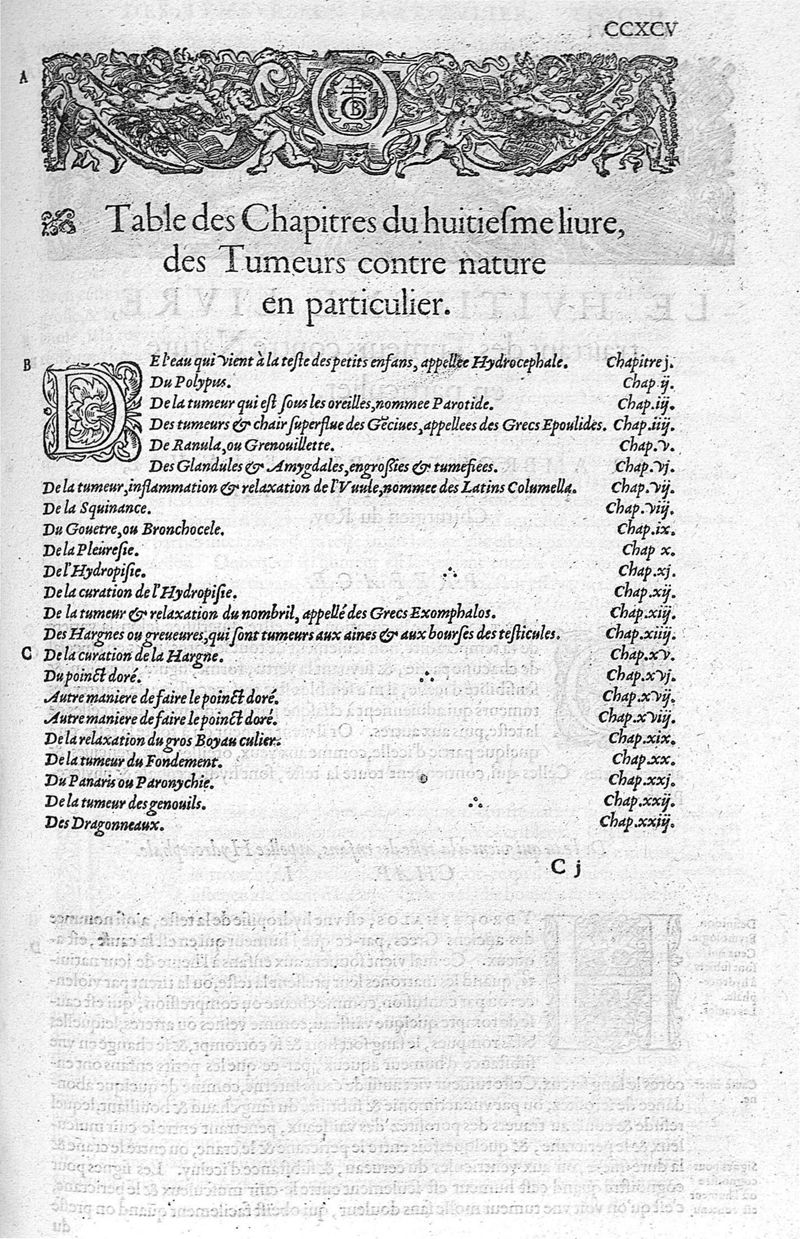 CCXCV
A
Table des Chapitres du huitiesme liure,
des Tumeurs contre nature
en particulier.
B
DE l'eau qui vient à la teste des petits enfans, appellée Hydrocephale. Chapitre j.
Du Polypus. Chap. ij.
De la tumeur qui est sous les oreilles, nommee Parotide. Chap. iij.
Des tumeurs & chair superflue des Gēciues, appellees des Grecs Epoulides. Chap. iiij.
De Ranula, ou Grenouillette. Chap. v.
Des Glandules & Amygdales, engroßies & tumefiees. Chap. vj.
De la tumeur, inflammation & relaxation de l'Vuule, nommee des Latins Columella. Chap. vij.
De la Squinance. Chap. viij.
Du Gouetre, ou Bronchocele. Chap. ix.
De la Pleuresie. Chap x.
De l'Hydropisie. Chap. xj.
De la curation de l'Hydropisie. Chap. xij.
De la tumeur & relaxation du nombril, appellé des Grecs Exomphalos. Chap. xiij.
Des Hargnes ou greueures, qui sont tumeurs aux aines & aux bourses des testicules. Chap. xiiij.
C De la curation de la Hargne. Chap. xv.
Du poinct doré. Chap. xvj.
Autre maniere de faire le poinct doré. Chap. xvij.
Autre maniere de faire le poinct doré. Chap. xviij.
De la relaxation du gros Boyau culier. Chap. xix.
De la tumeur du Fondement. Chap. xx.
Du Panaris ou Paronychie. Chap. xxj.
De la tumeur des genouils. Chap. xxij.
Des Dragonneaux. Chap. xxiij.
C j